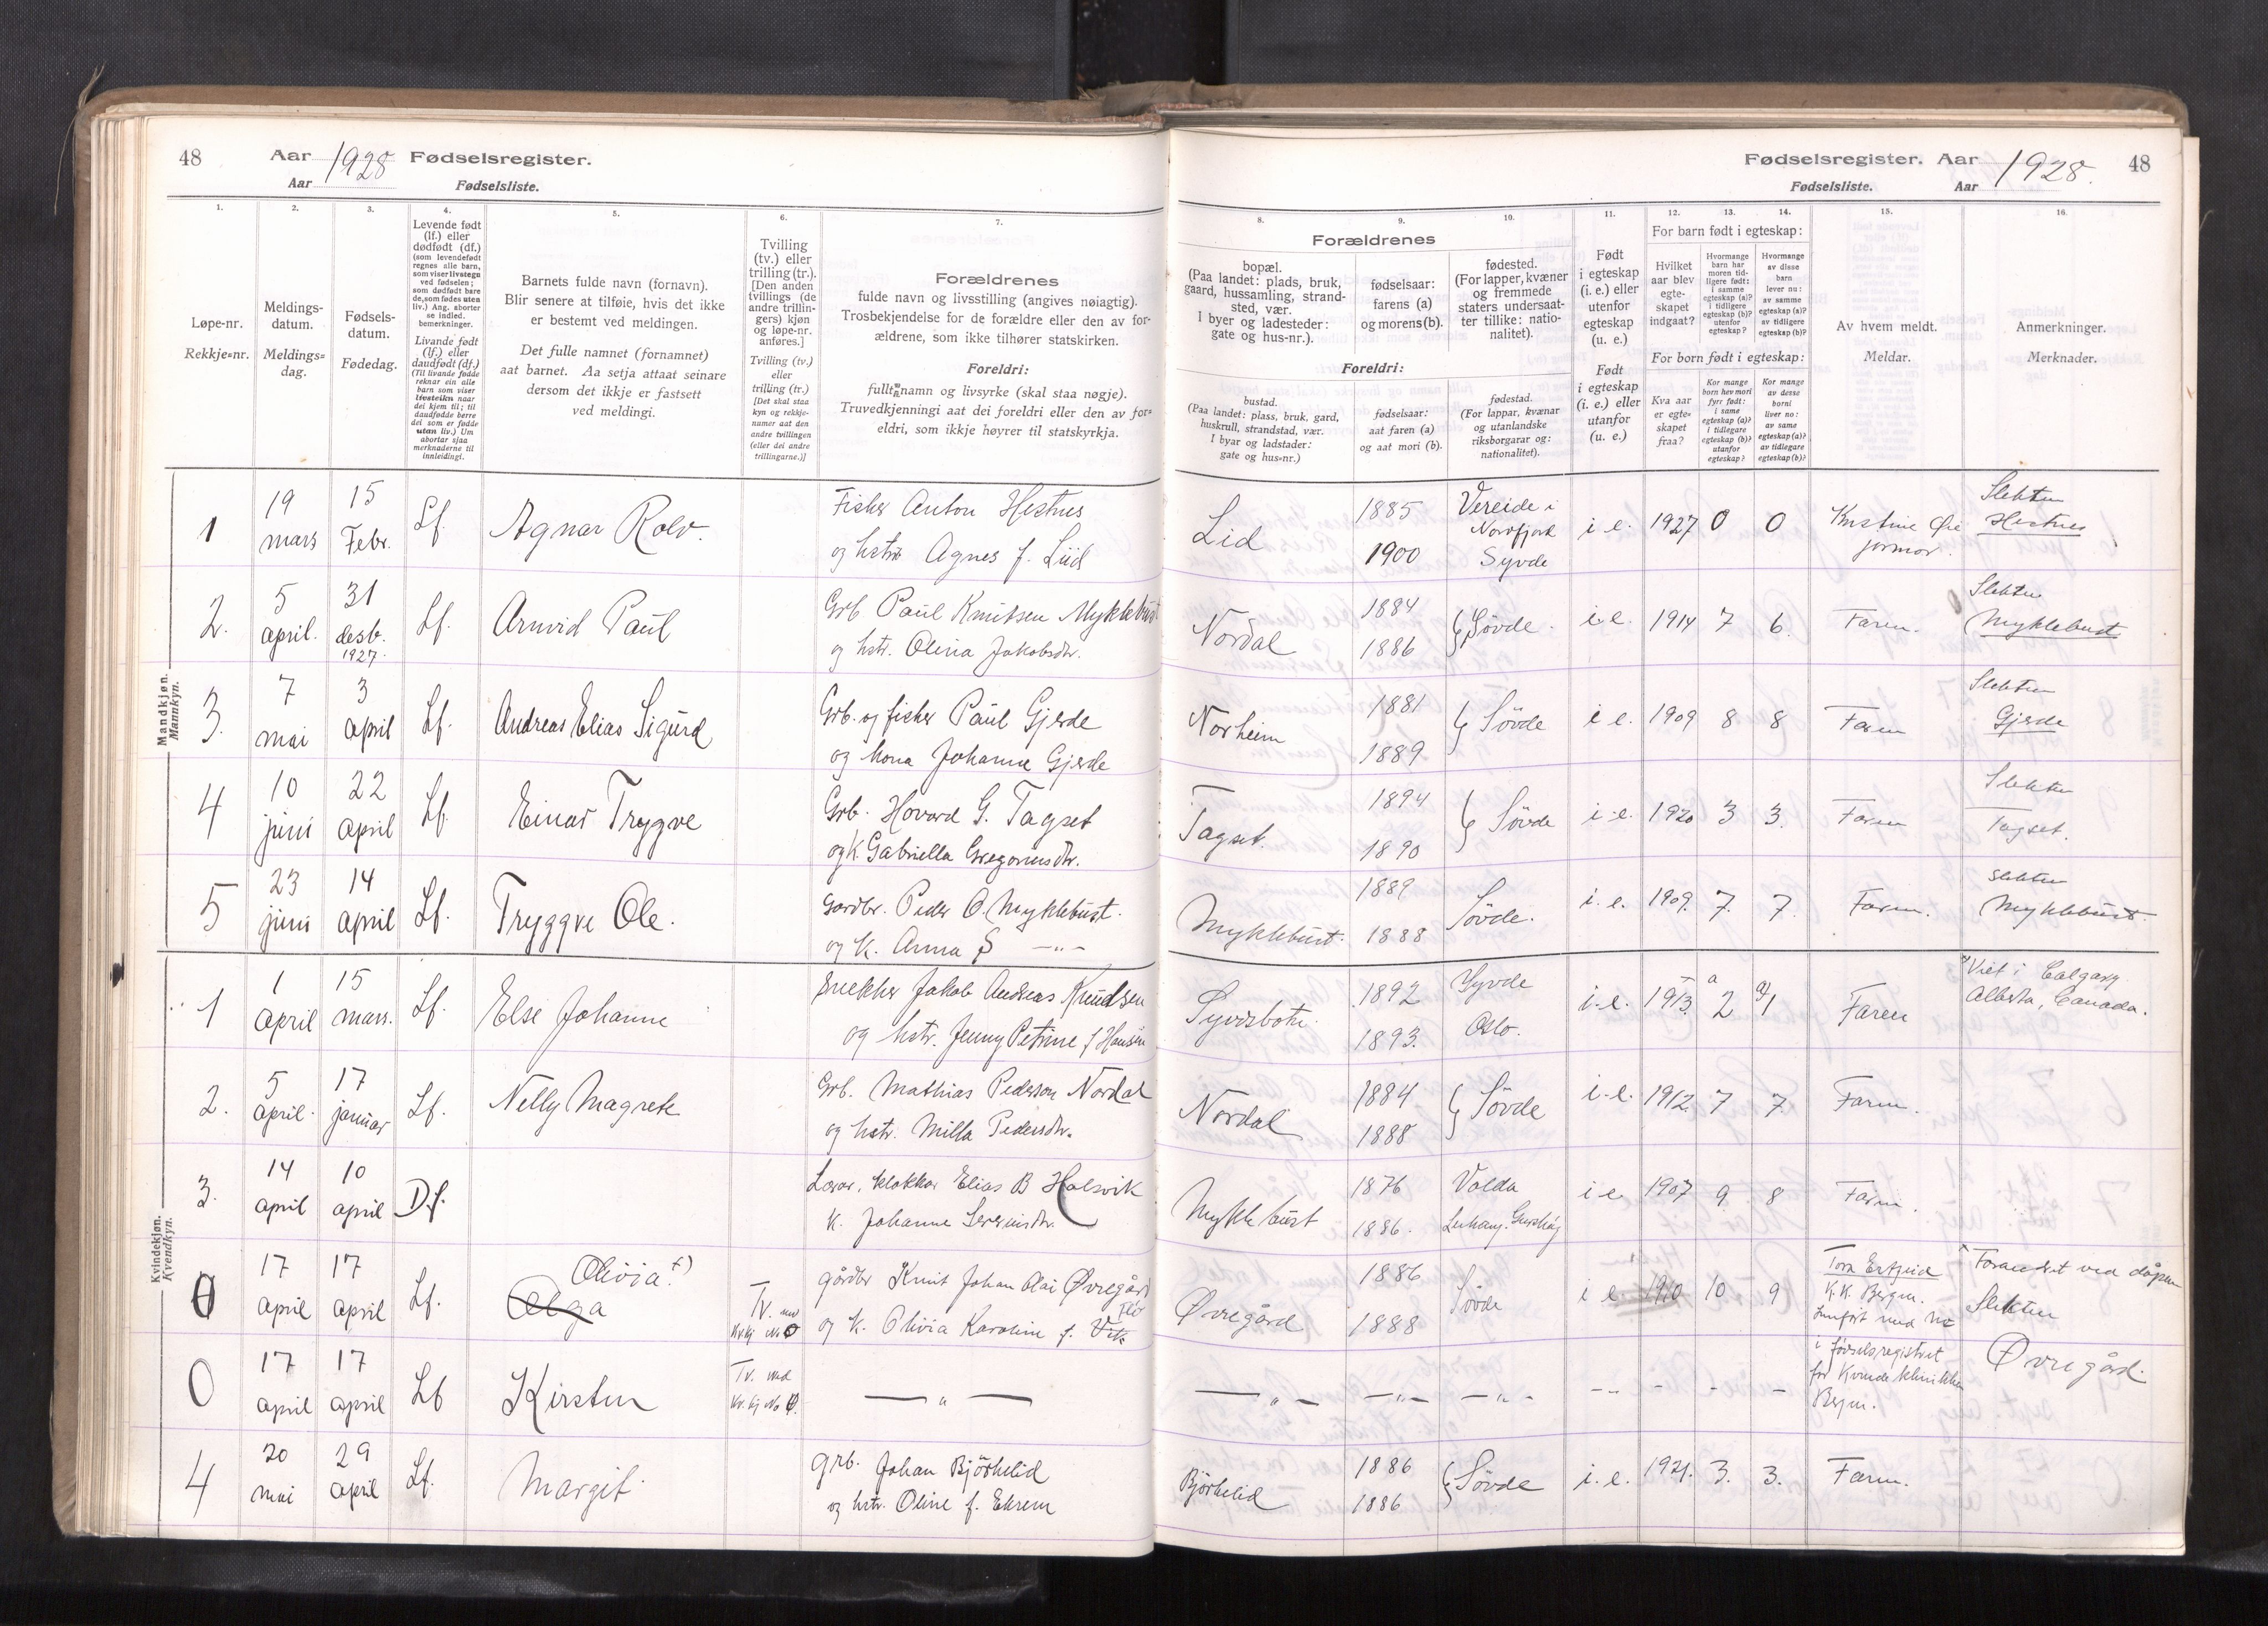 48 Aar 1928 Fødselsregister.
Aar Fødselsliste.
Fødselsregister. Aar 1928. 48
Fødselsliste. Aar
1. 2. 3. 4. 5. 6. 7.
Løpe-nr.
Rekkje=nr.
Meldings-
datum.
Meldings=
dag.
Fødsels-
datum.
Fødedag.
Levende født
(lf.) eller
dødfødt (df.)
(som levendefødt
regnes alle barn,
som viser livstegn
ved fødselen;
som dødfødt bare
de, som fødes uten
liv.) Ang. aborter
se indled.
bemerkninger.
Livande født
(lf.) eller
daudfødt (df.)
(Til livande fødde
reknar ein alle
barn som viser
livsteikn naar
dei kjem til; til
daudfødde berre
dei som er fødde
utan liv.) Um
abortar sjaa
merknaderne til
innleidingi.
Barnets fulde navn (fornavn).
Blir senere at tilføie, hvis det ikke
er bestemt ved meldingen.
Det fulle namnet (fornamnet)
aat barnet. Aa setja attaat seinare
dersom det ikkje er fastsett
ved meldingi.
Tvilling
(tv.) eller
trilling (tr.).
[Den anden
tvillings (de
andre trillin-
gers) kjøn
og løpe-nr.
anføres.]
Tvilling (tv.)
eller
trilling (tr.)
[Det skal staa
kyn og rekkje-
numer aat den
andre tvillingen
(eller dei andre
trillingarne.)]
Forældrenes
fulde navn og livsstilling (angives nøiagtig).
Trosbekjendelse for de forældre eller den av for-
ældrene, som ikke tilhører statskirken.
Foreldri:
fullt namn og livsyrke (skal staa nøgje).
Truvedkjenningi aat dei foreldri eller den av for=
eldri, som ikkje høyrer til statskyrkja.
8. 9. 10. 11. 12. 13. 14. 15. 16.
Forældrenes
bopæl.
(Paa landet: plads, bruk,
gaard, hussamling, strand-
sted, vær.
I byer og ladesteder:
gate og hus-nr.).
fødselsaar:
farens (a)
og morens (b).
fødested.
(For lapper, kvæner
og fremmede
staters undersaat-
ter tillike: natio-
nalitet).
Foreldri:
bustad.
(Paa landet: plass, bruk, gard,
huskrull, strandstad, vær.
I byar og ladstader:
gate og hus=nr.)
fødselsaar:
aat faren (a)
og aat mori (b).
fødestad.
(For lappar, kvænar
og utanlandske
riksborgarar og:
nationalitet).
Født
i egteskap
(i. e.) eller
utenfor
egteskap
(u. e.)
Født
i egteskap
(i. e.) eller
utanfor
(u. e.)
For barn født i egteskap:
Hvilket
aar blev
egte-
skapet
indgaat?
Hvormange
barn har
moren tid-
ligere født:
i samme
egteskap (a)?
i tidligere
egteskap (b)?
utenfor
egteskap?
Hvormange
av disse
barn
lever nu:
av samme
egteskap (a)?
av tidligere
egteskap (b)?
For born født i egteskap:
Kva aar
er egte=
skapet
fraa?
Kor mange
born hev mori
fyrr født:
i same
egteskap (a)?
i tidlegare
egteskap (b)?
utanfor
egteskap?
Kor mange
av desse
borni
liver no:
av same
egteskap (a)?
av tidlegare
egteskap (b)?
Av hvem meldt.
Meldar.
Anmerkninger.
Merknader.
Mandkjøn.
Mannkyn.
1 19 mars 15 Febr. Lf. Agnar Rolv. Fisker Anton Hestnes
og hstr Agnes f. Liid
Lid 1885 1900 Vereide i Nordfjord Syvde i e. 1927 0 0 Kristine jormor. Slekten Hestnes
2. 5 april. 31 desb. 1927. Lf. Arnvid Paul Grb Paul Knutsen Myklebust
og hstr. Olina Jakobsdtr.
Nordal 1884 1886 Søvde. i e. 1914 7 6. Faren. Slekten Myklebust
3. 7 mai 3 april Lf. Andreas Elias Sigurd Grb. og fisker Paul Gjerde
og kona Johanne Gjerde
Norheim 1881 1889 Søvde i e. 1909 8 8 Faren Slekten Gjerde
4 10 juni 22 april Lf. Einar Tryggve Grb. Hovard G. Tagset
og K. Gabriella Gregoriusdtr.
Tagset. 1894 1890 Søvde i e. 1920 3 3. Faren Slekten Tagset.
5 23 juni 14 april Lf. Tryggve Ole. Gardbr. Peder O. Myklebust.
og K. Anna S —„—
Myklebust. 1889 1888 Søvde. i. e. 1909. 7. 7. Faren. Slekten Myklebust.
Kvindekjøn.
Kvendkyn.
1 1 april 15 mars. Lf. Else Johanne Snekker Jakob Andreas Knudsen
og hstr. Jenny Petrine f Hansen
Syvdsbotn. 1892 1893. Syvde Oslo. i. e. 1913. a 2 a) 1 Faren Viet i Calgary
Alberta, Canada.
2. 5 april. 17 januar Lf. Nelly Magrete Grb. Mathias Pederson Nordal
og hstr. Milla Pedersdtr.
Nordal 1884 1888 Søvde i. e. 1912. 7 7 Faren.
3. 14 april 10 april D.f. Lærar, klokkar Elias B Halsvik
K. Johanne Severinsdtr.
Myklebust 1876 1886. Volda i e. 1907 9 8 Faren.
0 17 april 17 april Lf. Olivia +) Olga Tv. med Kv.kj No 0 gårdbr Knut Johan Olai Øvregård
og K. Olivia Karoline f. Vik
Øvregård 1886 1888 Søvde i e 1910 10 9 K. K. Bergen. Forandret ved dåpen
Slekten
0 17 april 17 april Lf Kirsten Tv. med Kv. kj No 0. — „ —
— „ — — „ — — „ — i fødselsregistret
for Kvindeklinikken
Bergen.
Øvregård.
4 20 mai 29 april Lf. Margit. grb. Johan Bjørkelid
og hstr. Oline f. Ekrem
Bjørkelid 1886 1886 Søvde i. e. 1921. 3. 3. Faren.